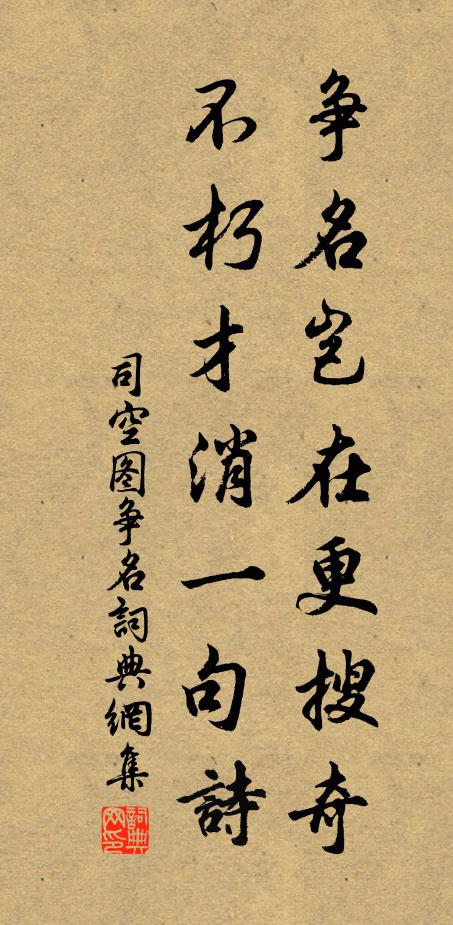 争名岂在更搜奇
不朽才消一句詩
司空图争名詞典網集
詞典网印